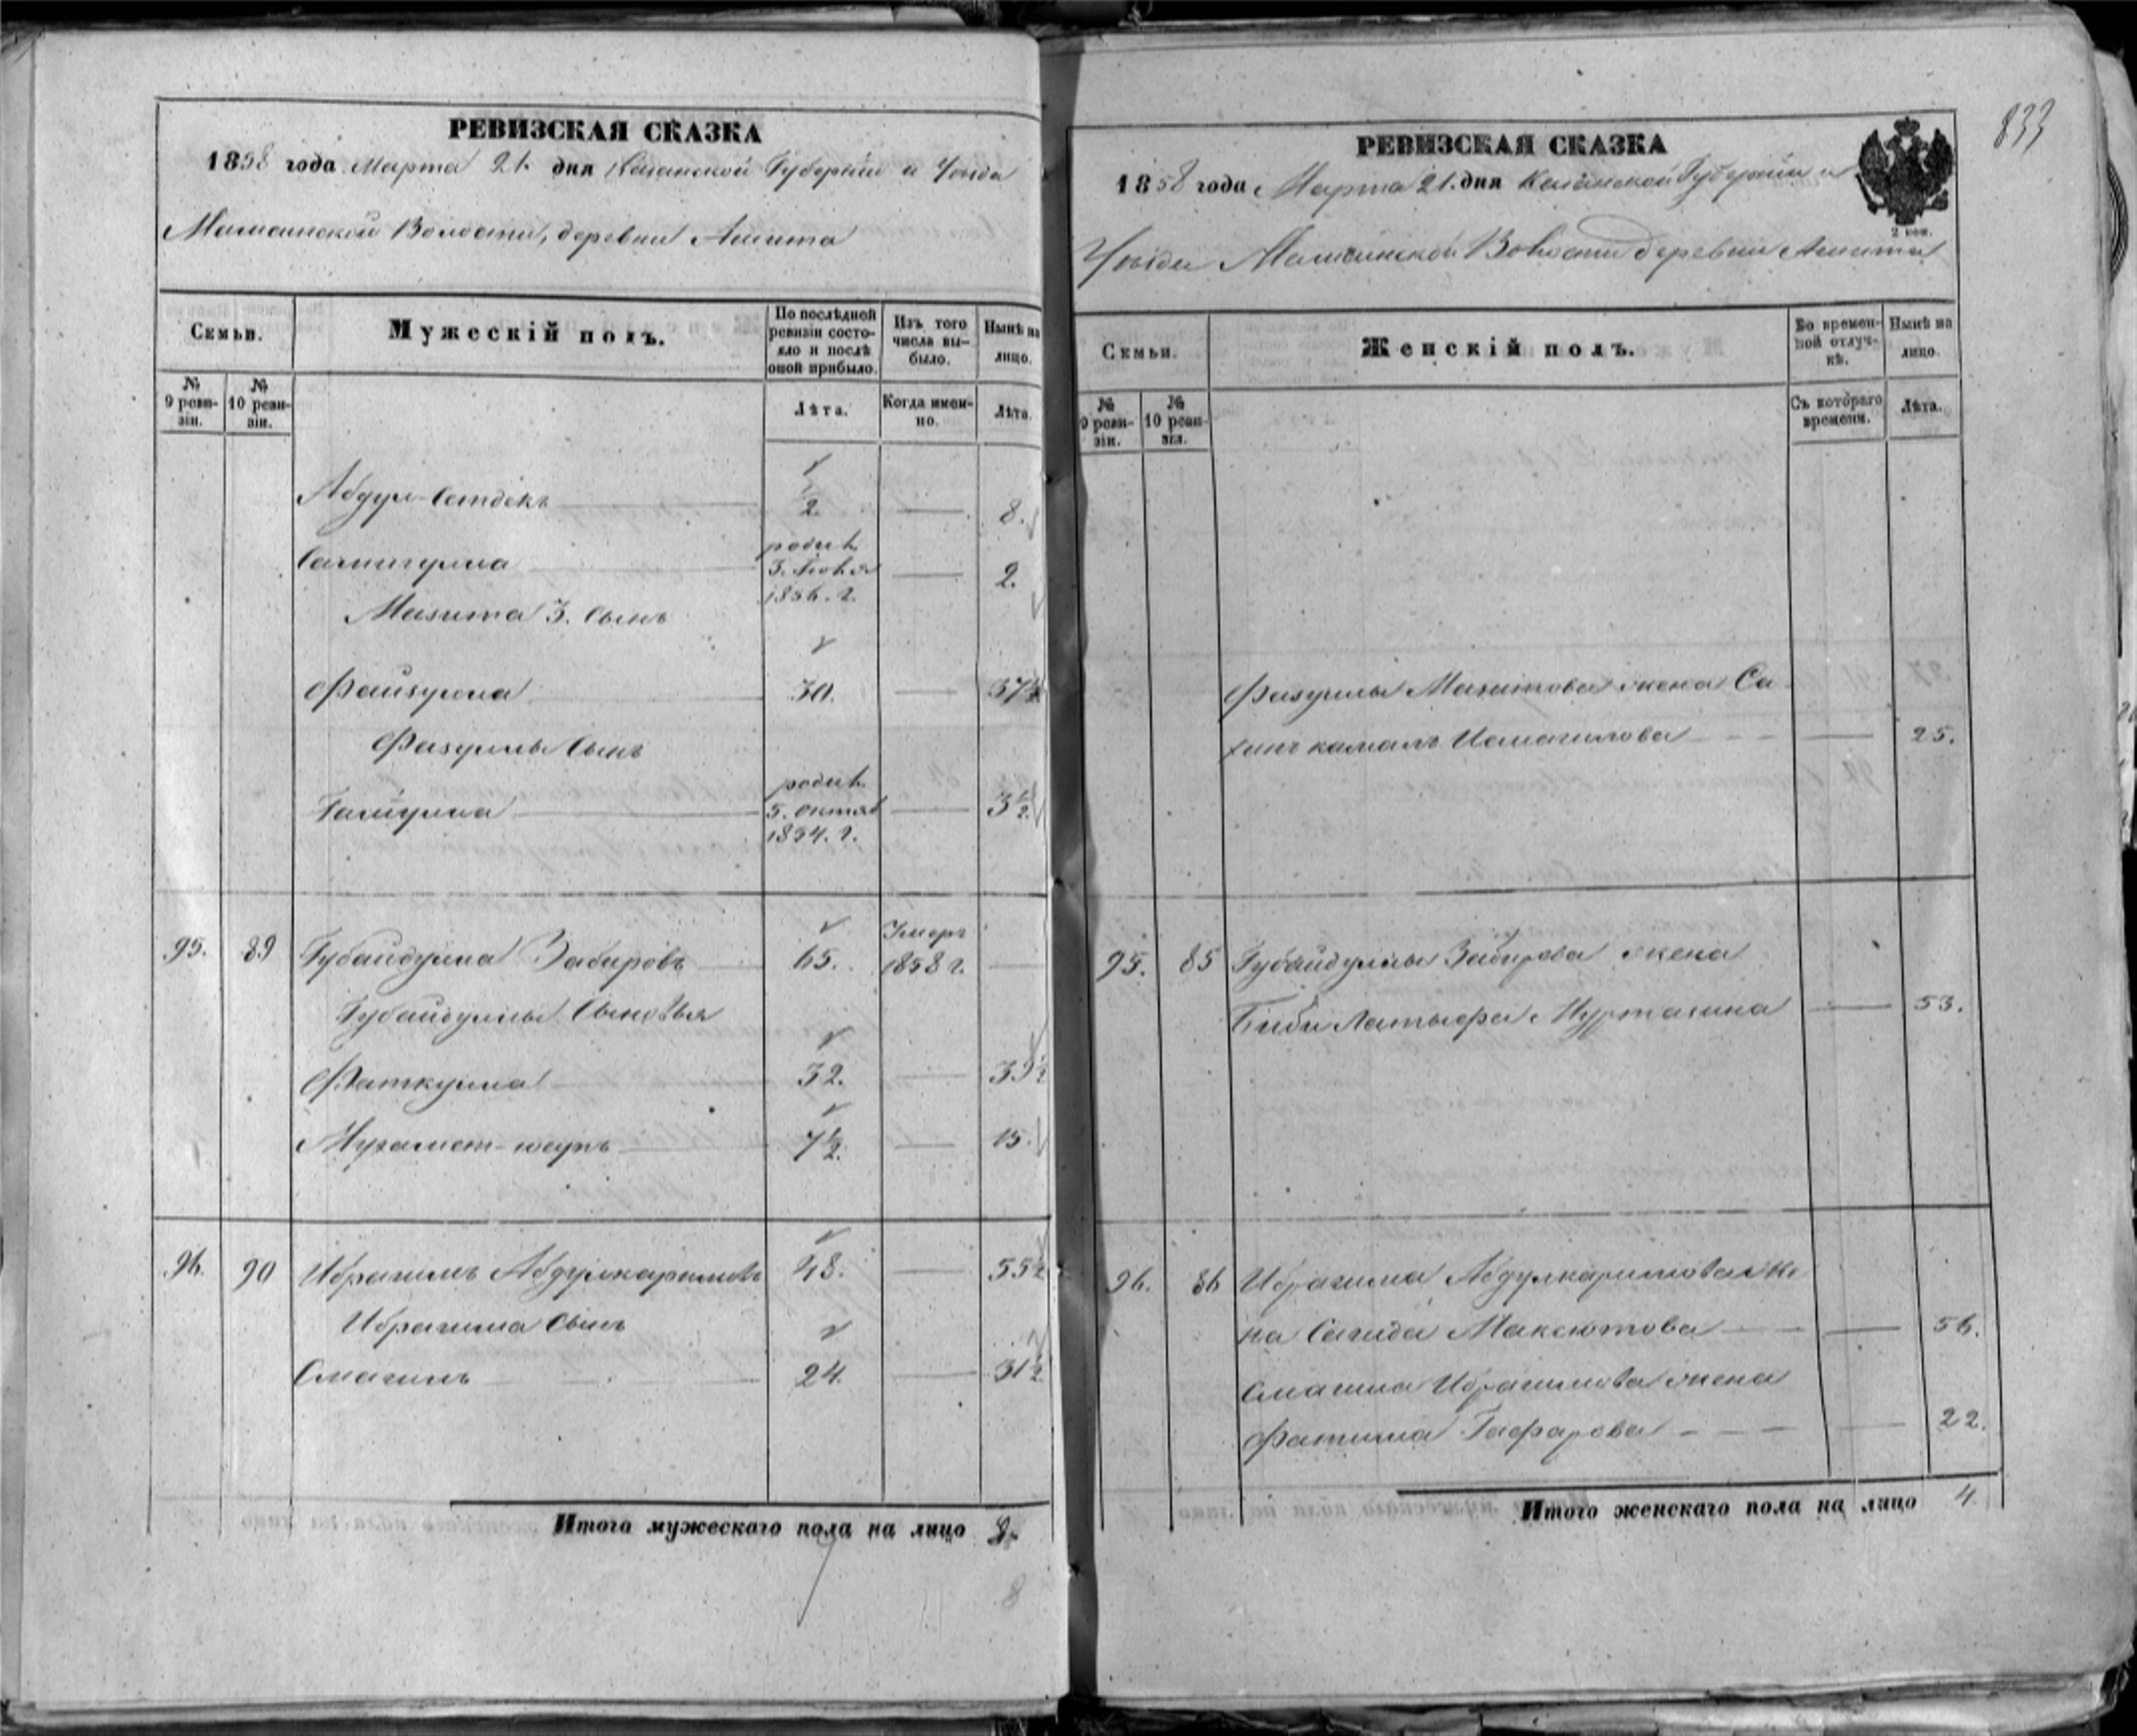 РЕВИЗСКАЯ СКАЗКА
1858 года Марта 21. дня Казанской Губернии и Уезда
Мамсинской Волости, деревни Ашита
Семьи.
Мужескій полъ.
По послѣдней ревизіи состояло и послѣ оной прибыло.
Изъ того числа выбыло.
Нынѣ на лицо.
№ 9 ревизіи.
№ 10 ревизіи.
Лѣта.
Когда именно.
Лѣта.
Абдул-Ситдекъ ½ 8.
родил. 3. Июня 1856. г. 2.
Мазита 3. сынъ
Файзулла 30. 37½
Фазуллы сынъ
родил. 5. октяб 1854. г. 3½
95. 89 Губайдулла Забировъ 65. Умеръ 1858 г.
Губайдуллы сыновья
Фаткулла 32. 39½
Мухамет-юсупъ 7½ 15.
96. 90 Ибрагимъ Абдулкаримовъ 48. 55½
Ибрагима сынъ
Смагилъ 24. 31½
Итого мужескаго пола на лицо
8
833
РЕВИЗСКАЯ СКАЗКА
1858 года Марта 21. дня Казанской Губернии и
2 коп.
Уезда Мамсинской Волости деревни Ашита
Семьи.
Женскій полъ.
Во временной отлучкѣ.
Нынѣ на лицо.
№ 9 ревизіи.
№ 10 ревизіи.
Съ котораго времени.
Лѣта.
Фазуллы Мазитова жена Са
камалъ Исмагилова 25.
95. 85 Губайдуллы Забирова жена
Биби Латыфа Муртазина 53.
96. 86 Ибрагима Абдулкаримова же
на Сагида Максютова 56.
Смагила Ибрагимова жена
Фатима Гафарова 22.
Итого женскаго пола на лицо 4.